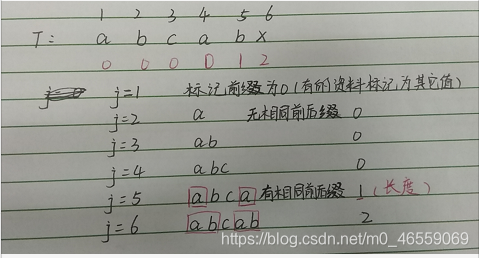 1 2 3 4 5 6
T: a b c a b x
0 0 0 0 1 2
j=1 标记前缀为0(有的资料标记为其它值)
j=2 a 无相同前后缀 0
j=3 ab 0
j=4 abc 0
j=5 abca 有相同前后缀 1 (长度)
j=6 abcab 2
https://blog.csdn.net/m0_46559069